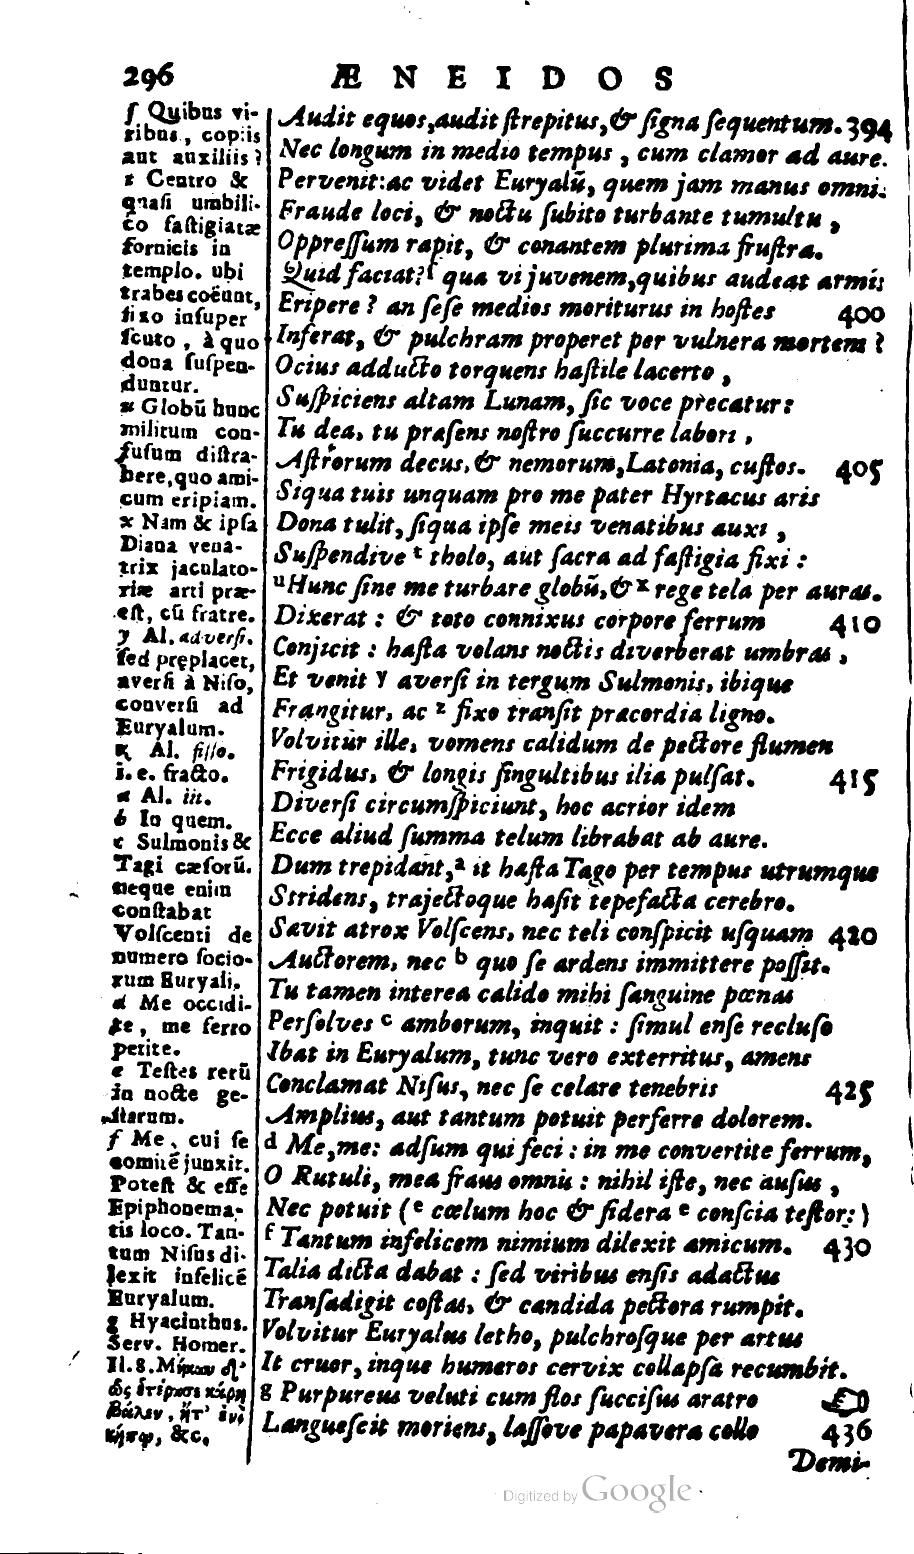 296 ÆNEIDOS
ſ Quibus vi-
ribus, copiis
aut auxiliis?
t Centro &
quaſi umbili-
co faſtigiatæ
fornicis in
templo. ubi
trabes coëunt,
fixo inſuper
ſcuto, à quo
dona ſuſpen-
duntur.
u Globū hunc
militum con-
fuſum diſtra-
here, quo ami-
cum eripiam.
x Nam & ipſa
Diana vena-
trix jaculato-
riæ arti præ-
eſt, cū fratre.
y Al. adverſi.
ſed preplacet,
averſi à Niſo,
converſi ad
Euryalum.
z Al. fiſſo.
i. e. fracto.
a Al. iit.
b In quem.
c Sulmonis &
Tagi cæſorū.
neque enim
conſtabat
Volſcenti de
numero ſocio-
rum Euryali.
d Me occidi-
te, me ferro
petite.
e Teſtes rerū
in nocte ge-
ſtarum.
f Me, cui ſe
comitē junxit.
Poteſt & eſſe
Epiphonema-
tis loco. Tan-
tum Niſus di-
lexit infelicē
Euryalum.
g Hyacinthus.
Serv. Homer.
Il. 8. Μήκων δ'
ὡς ἑτέρωσε κάρη
βάλεν, ἥτ' ἐνὶ
κήπῳ, &c.
Audit equos, audit ſtrepitus, & ſigna ſequentum. 394
Nec longum in medio tempus, cum clamor ad aure.
Pervenit: ac videt Euryalū, quem jam manus omni.
Fraude loci, & noctu ſubito turbante tumultu,
Oppreſſum rapit, & conantem plurima fruſtra.
Quid faciat? ſ qua vi juvenem, quibus audeat armis
Eripere? an ſeſe medios moriturus in hoſtes 400
Inferat, & pulchram properet per vulnera mortem?
Ocius adducto torquens haſtile lacerto,
Suſpiciens altam Lunam, ſic voce precatur:
Tu dea, tu præſens noſtro ſuccurre labori,
Aſtrorum decus, & nemorum, Latonia, cuſtos. 405
Siqua tuis unquam pro me pater Hyrtacus aris
Dona tulit, ſiqua ipſe meis venatibus auxi,
Suſpendive t tholo, aut ſacra ad faſtigia fixi:
u Hunc ſine me turbare globū, & x rege tela per auras.
Dixerat: & toto connixus corpore ferrum 410
Conjicit: haſta volans noctis diverberat umbras,
Et venit y averſi in tergum Sulmonis, ibique
Frangitur, ac z fixo tranſit præcordia ligno.
Volvitur ille, vomens calidum de pectore flumen
Frigidus, & longis ſingultibus ilia pulſat. 415
Diverſi circumſpiciunt, hoc acrior idem
Ecce aliud ſumma telum librabat ab aure.
Dum trepidant, a it haſta Tago per tempus utrumque
Stridens, trajectoque hæſit tepefacta cerebro.
Sævit atrox Volſcens, nec teli conſpicit uſquam 420
Auctorem, nec b quo ſe ardens immittere poſſit.
Tu tamen interea calido mihi ſanguine pœnas
Perſolves c amborum, inquit: ſimul enſe recluſo
Ibat in Euryalum, tunc vero exterritus, amens
Conclamat Niſus, nec ſe celare tenebris 425
Amplius, aut tantum potuit perferre dolorem.
d Me, me: adſum qui feci: in me convertite ferrum,
O Rutuli, mea fraus omnis: nihil iſte, nec auſus,
Nec potuit (e cœlum hoc & ſidera e conſcia teſtor:)
f Tantum infelicem nimium dilexit amicum. 430
Talia dicta dabat: ſed viribus enſis adactus
Tranſadigit coſtas, & candida pectora rumpit.
Volvitur Euryalus letho, pulchroſque per artus
It cruor, inque humeros cervix collapſa recumbit.
g Purpureus veluti cum flos ſucciſus aratro
Langueſcit moriens, laſſove papavera collo 436
Demi-
Digitized by Google